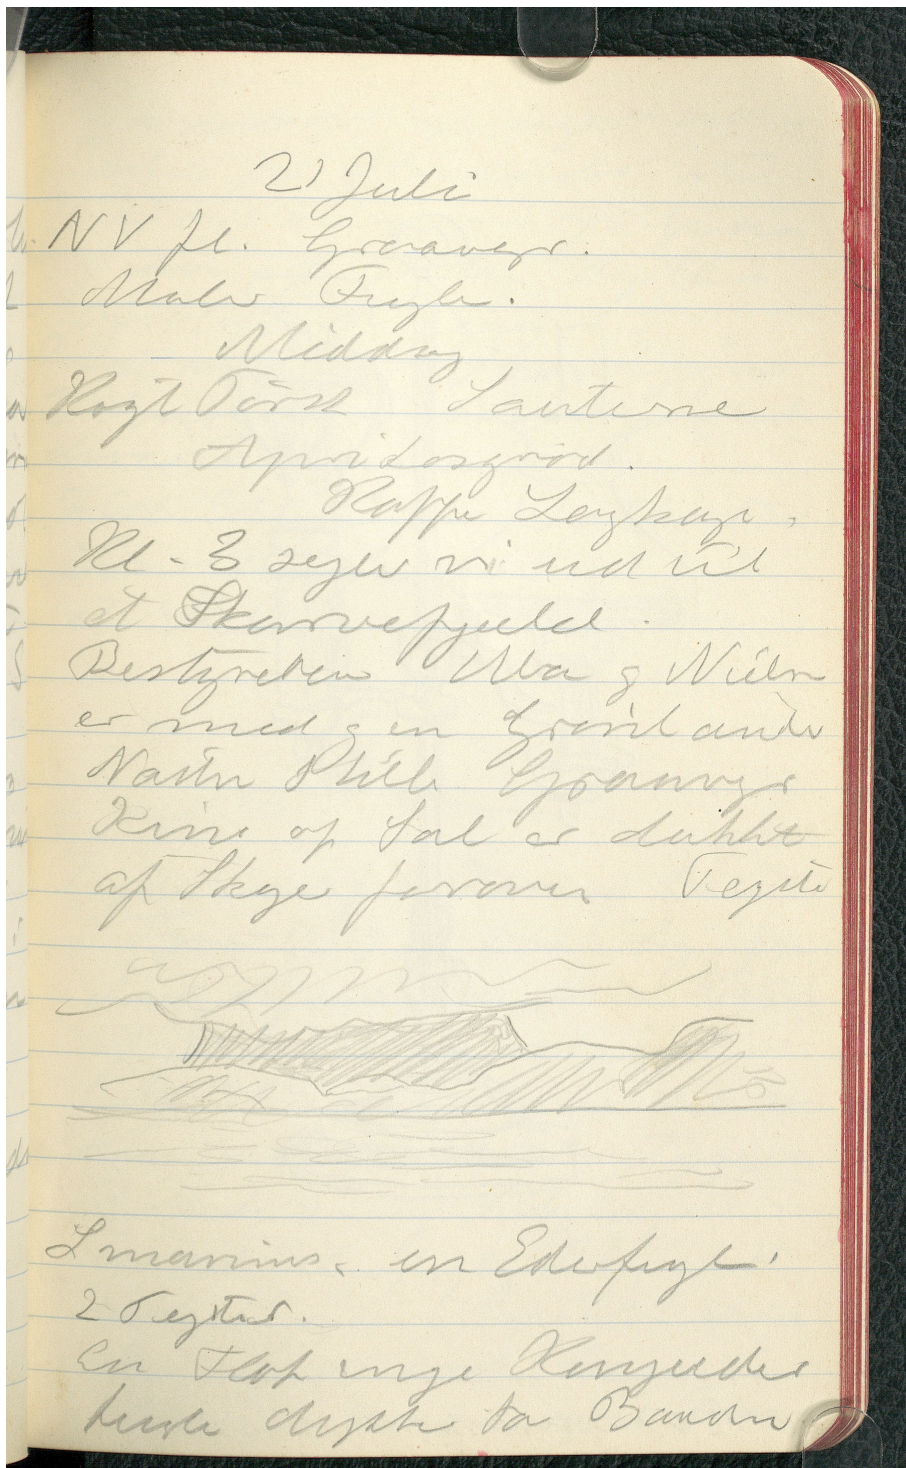 21 Juli
NV fl. Graavejr.
Maler Fugle.
Middag
Kogt Torsk Sauterne
Apricosgrød.
Kaffe Lagkage.
Kl. 3 sejler vi ud til
et Skarvefjeld.
Bestyreren og
er med og en Grönlænder
Næsten Stille Graavejr
af Sol er dækket
af Skyer foroven Tejste
L marinus. en Ederfugl.
2 Tejster.
En Flok unge Kongeeder
dykke for Baaden